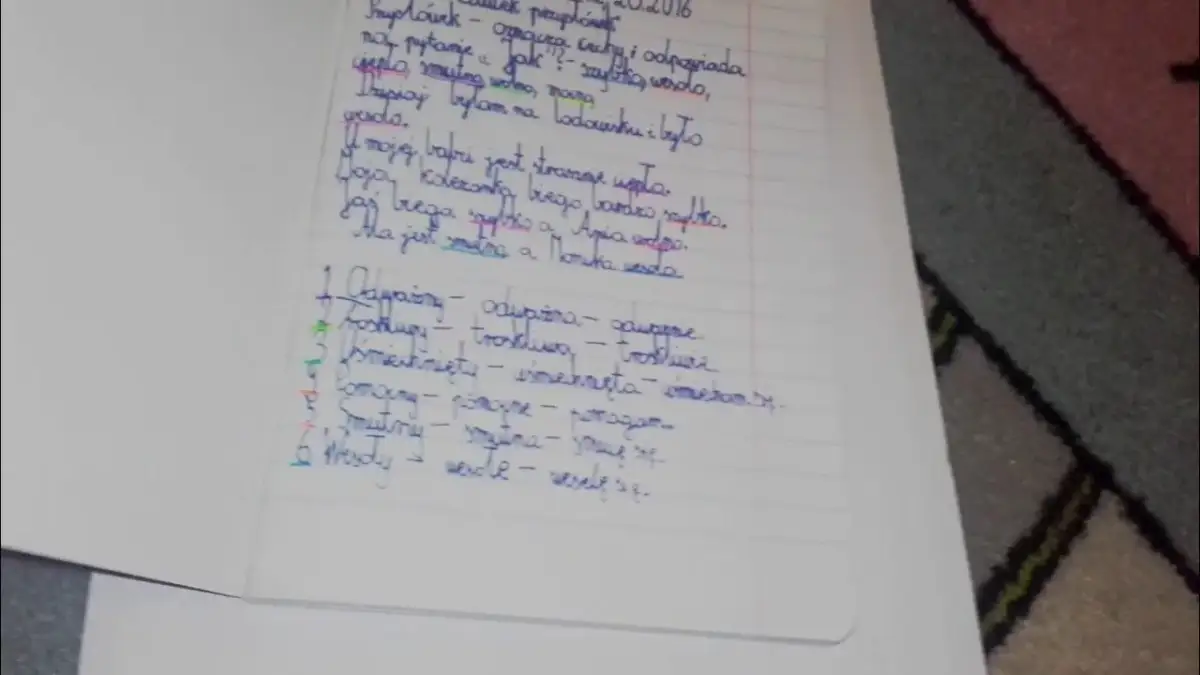 przysłówek
Przysłówek - oznacza cechy i odpowiada
na pytanie „Jak"? - szybko, wesoło,
ciepło, smutno, wolno,
Dzisiaj byłam na lodowisku i było
wesoło.
U mojej babci jest strasznie ciepło.
Moja koleżanka biega bardzo szybko.
Jaś biega szybko a Ania wolno.
Ala jest smutna a Monika wesoła
1 Odważny - odważna - odważnie
troskliwy - troskliwa - troskliwie
3 Uśmiechnięty - uśmiechnięta - uśmiecham się.
4 Pomocny - pomocne - pomagam
5. Smutny - smutna - smucę się.
6 Wesoły - wesołe - weselę się.